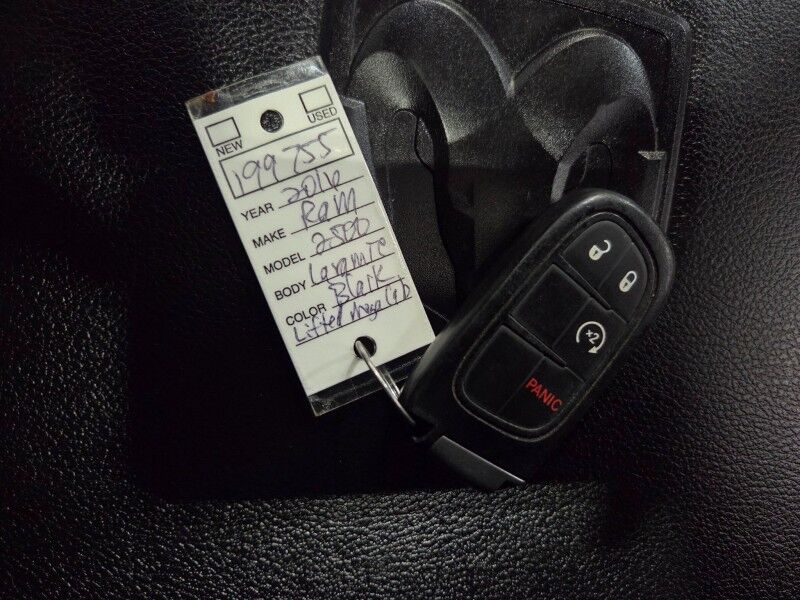 NEW USED
199755
YEAR 2016
MAKE Ram
MODEL 2500
BODY Laramie
COLOR Black
Lifted mega cab
x2
PANIC